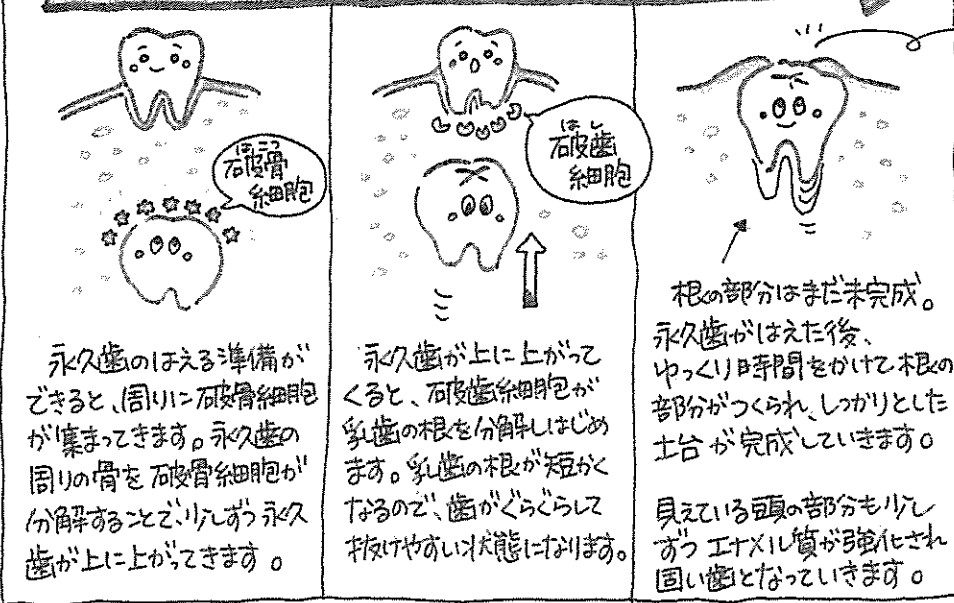 はこつ
破骨
細胞
永久歯のはえる準備が
できると、周りに破骨細胞
が集まってきます。永久歯の
周りの骨を破骨細胞が
分解することで、少しずつ永久
歯が上に上がってきます。
はし
破歯
細胞
永久歯が上に上がって
くると、破歯細胞が
乳歯の根を分解しはじめ
ます。乳歯の根が短かく
なるので、歯がぐらぐらして
抜けやすい状態になります。
根の部分はまだ未完成。
永久歯がはえた後、
ゆっくり時間をかけて根の
部分がつくられ、しっかりとした
土台が完成していきます。
見えている頭の部分も少し
ずつエナメル質が強化され
固い歯となっていきます。